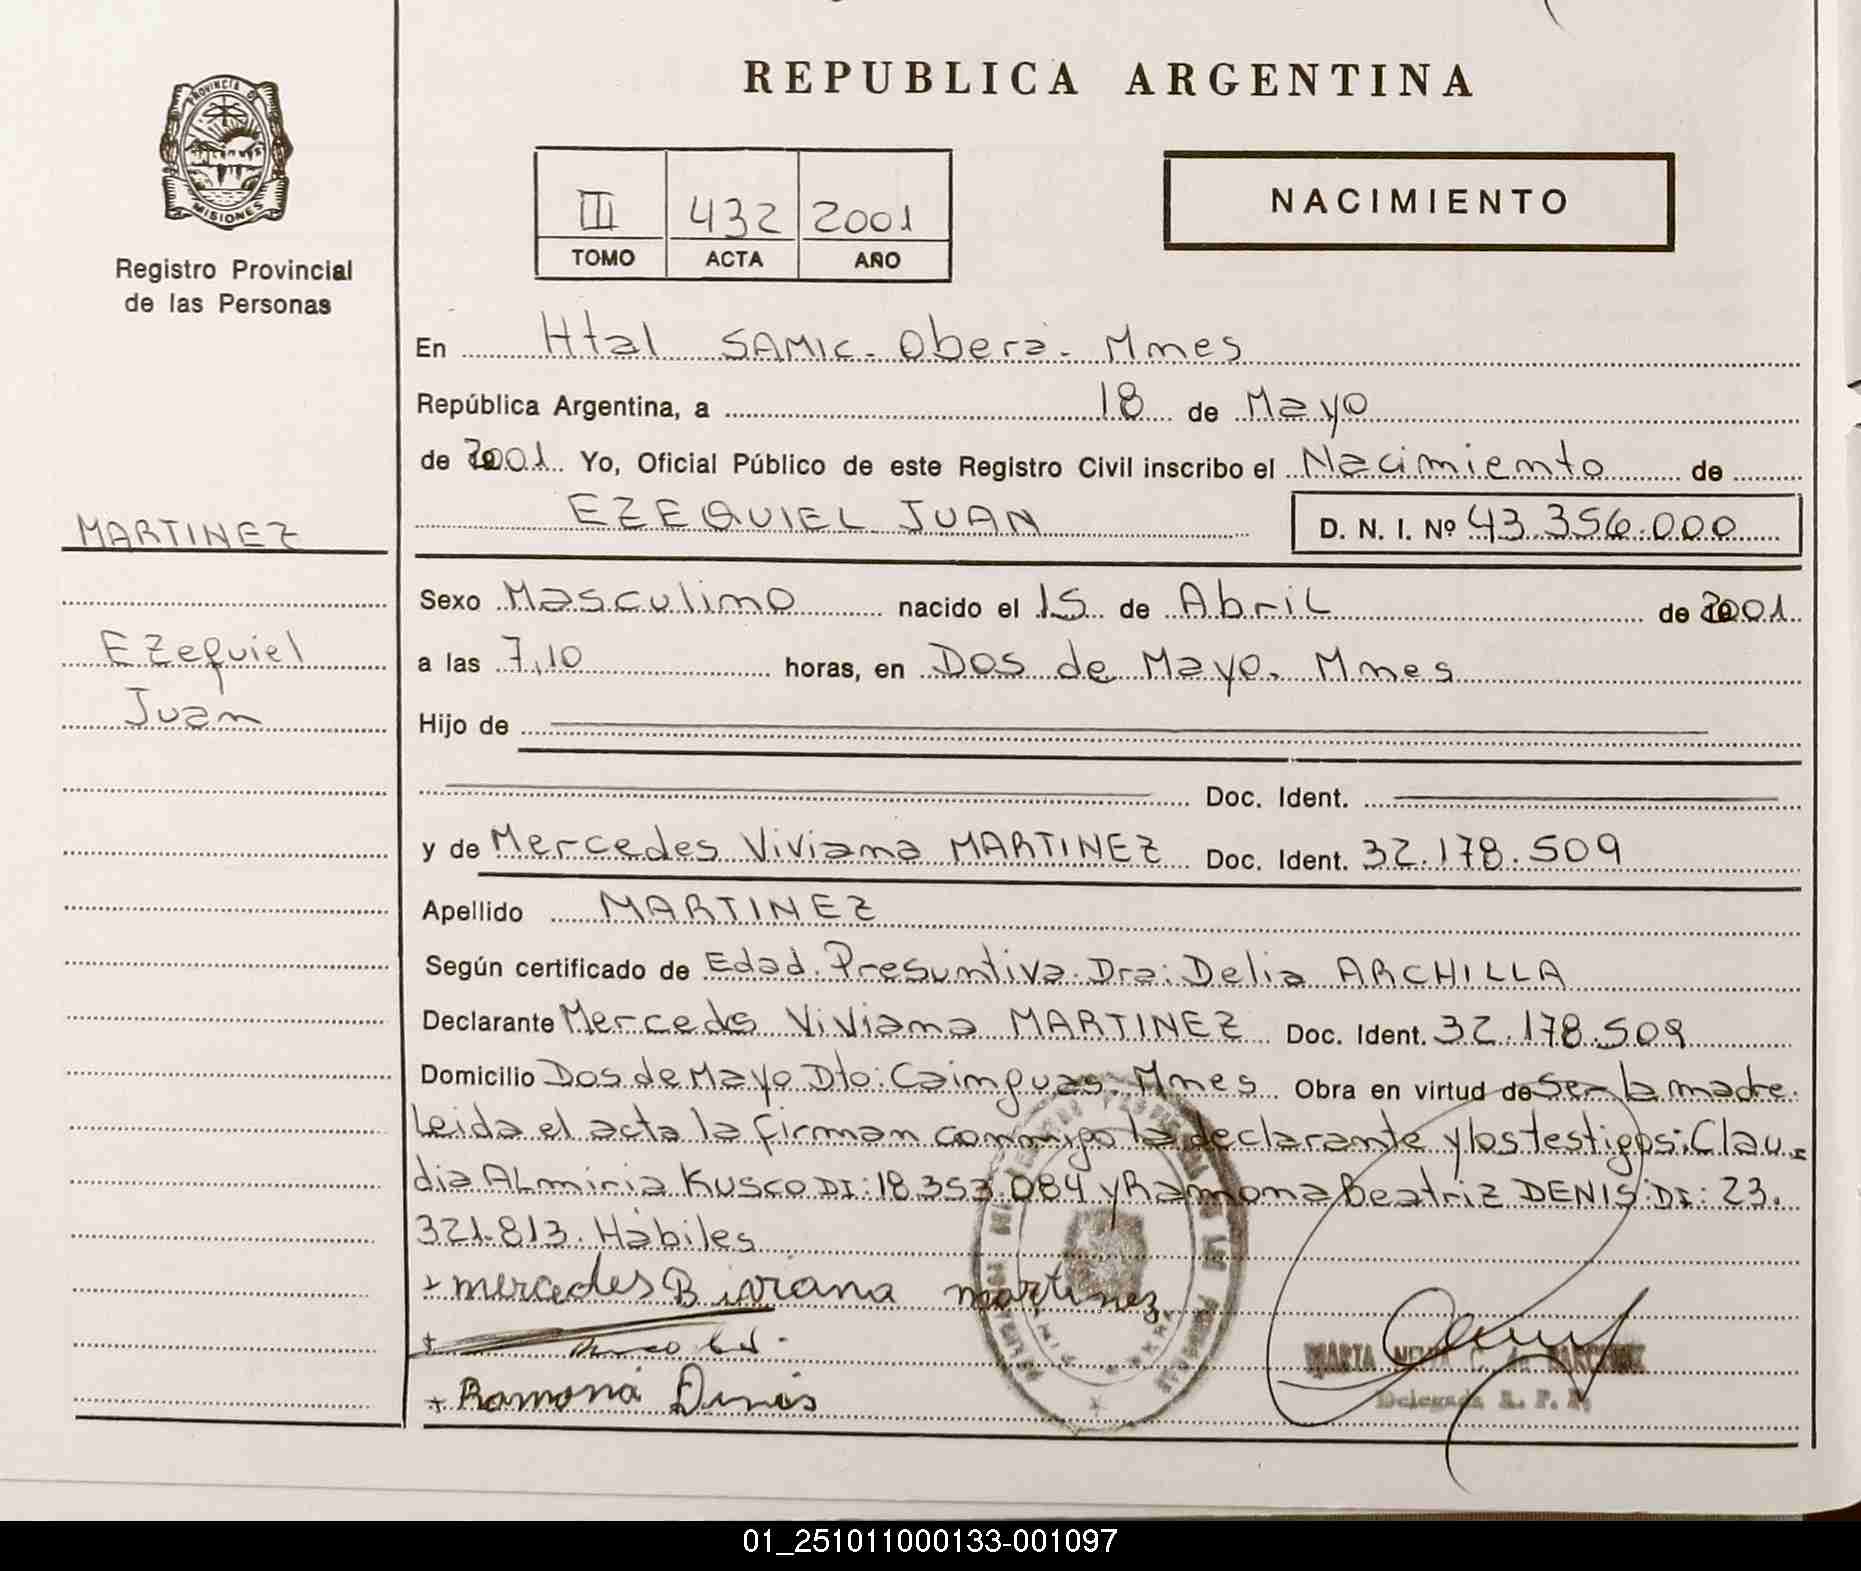 REPUBLICA ARGENTINA
PROVINCIA DE
MISIONES
Registro Provincial
de las Personas
III 432 2001
TOMO ACTA AÑO
NACIMIENTO
En Htal SAMIC. Oberá. Mnes
República Argentina, a 18 de Mayo
de 2001 Yo, Oficial Público de este Registro Civil inscribo el Nacimiento de
MARTINEZ
EZEQUIEL JUAN D. N. I. Nº 43.356.000
Sexo Masculino nacido el 15 de Abril de 2001
Ezequiel
a las 7,10 horas, en Dos de Mayo. Mnes
Juan
Hijo de
Doc. Ident.
y de Mercedes Viviana MARTINEZ Doc. Ident. 32.178.509
Apellido MARTINEZ
Según certificado de Edad Presuntiva. Dra: Delia ARCHILLA
Declarante Mercedes Viviana MARTINEZ Doc. Ident. 32.178.509
Domicilio Dos de Mayo Dto: Cainguas. Mnes Obra en virtud de Ser la madre.
Leida el acta la firman conmigo la declarante y los testigos: Clau-
dia ALmiria KUSCO DI: 18.353.084 y Ramona Beatriz DENIS: DI: 23.
321.813. Hábiles
+ mercedes Biviana martinez
+
+ Ramona Denis
MARTA
Delegada R. P. P.
01_251011000133-001097